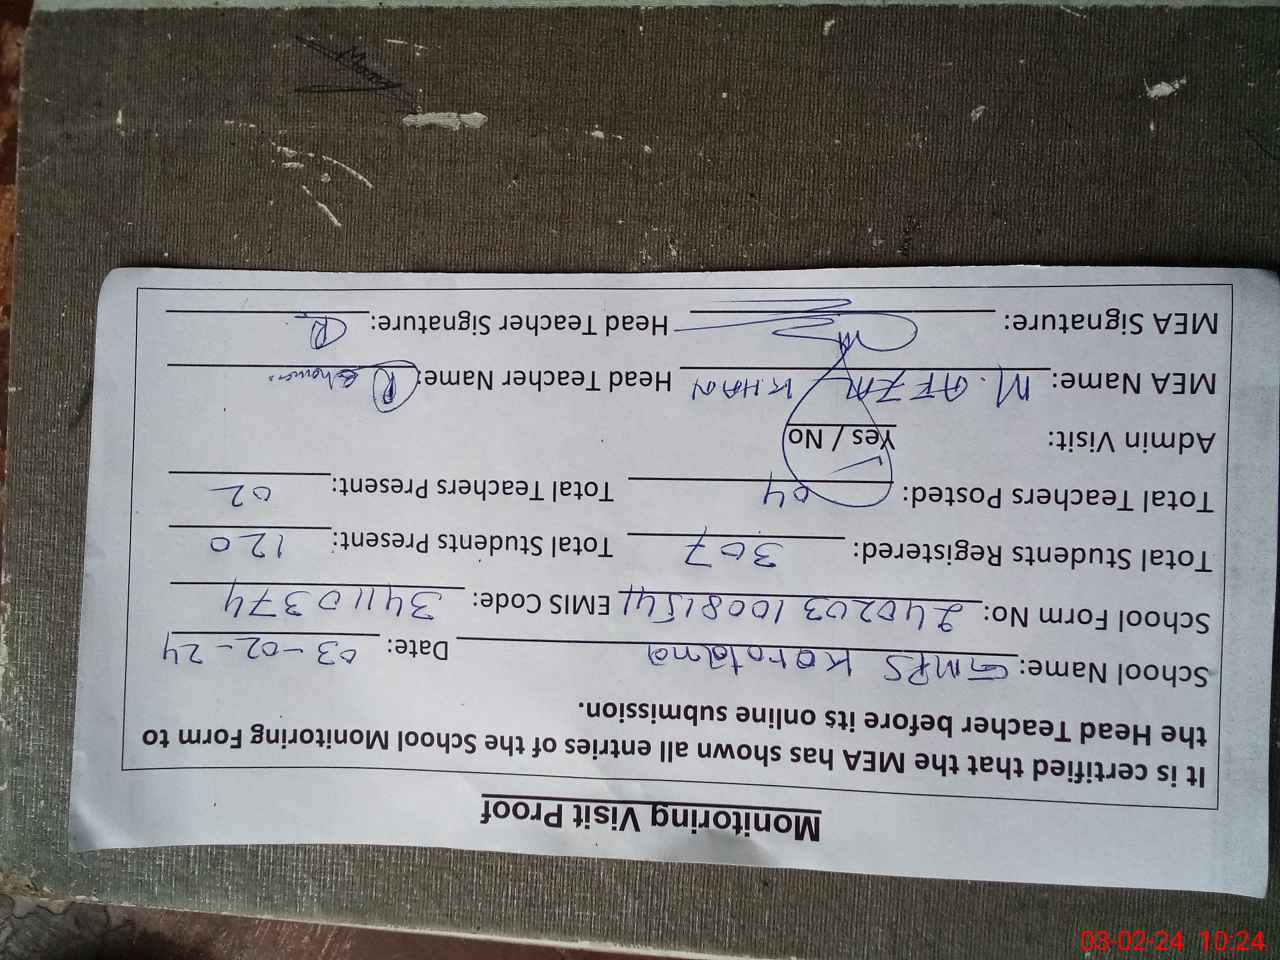 Monitoring Visit Proof
It is certified that the MEA has shown all entries of the School Monitoring Form to
the Head Teacher before its online submission.
School Name: GMPS Karotana Date: 03-02-24
School Form No: 24020310081541 EMIS Code: 34110374
Total Students Registered: 307 Total Students Present: 120
Total Teachers Posted: 04 Total Teachers Present: 02
Admin Visit: Yes / No
MEA Name: M. AFZAL KHAN Head Teacher Name:
MEA Signature: Head Teacher Signature:
03-02-24 10:24